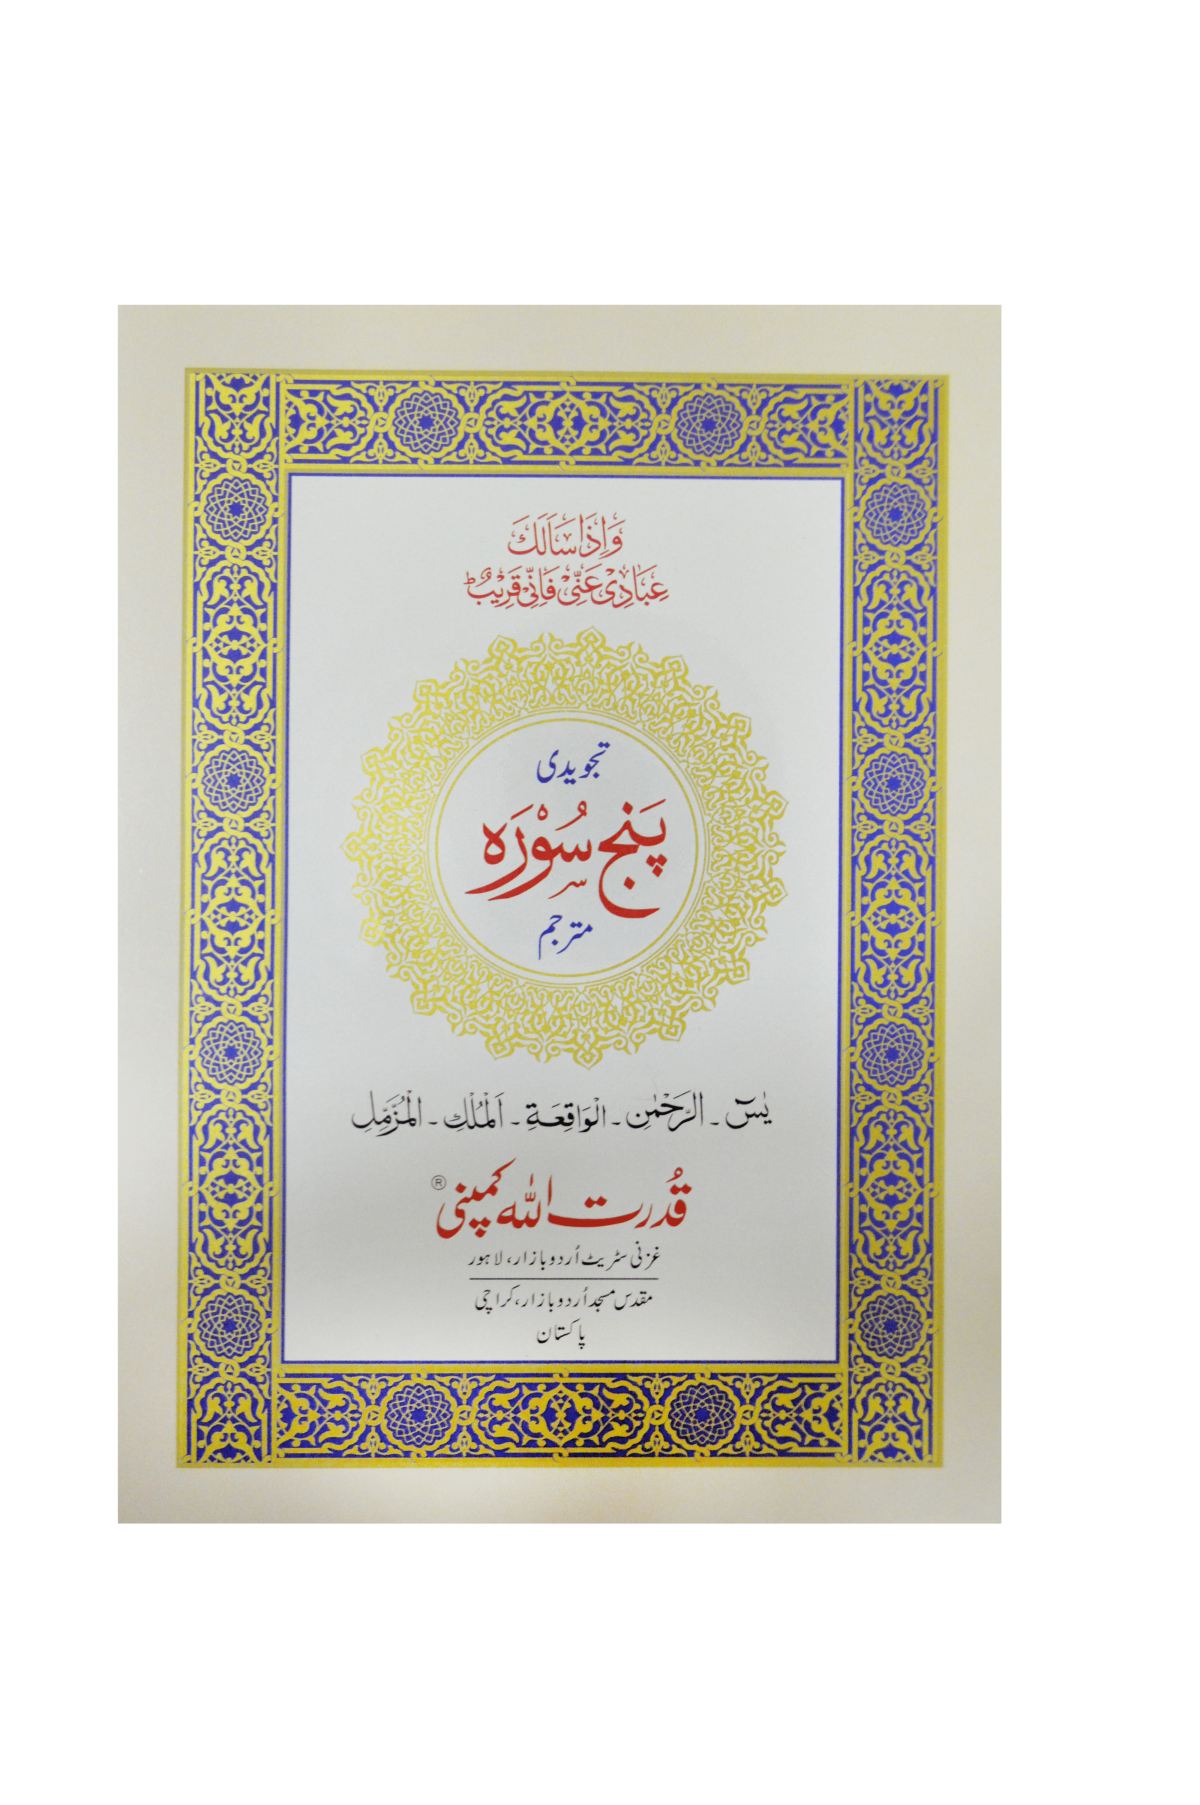 وَاِذَا سَاَلَكَ
عِبَادِیْ عَنِّیْ فَاِنِّیْ قَرِیْبٌ ؕ
تجویدی
پَنج سُوْرَہ
مترجم
یٰسٓ ۔ الرَّحْمٰنِ ۔ الْوَاقِعَة ۔ اَلْمُلْكِ ۔ الْمُزَّمِّلِ
قُدرت اللہ کمپنی ®
غزنی سٹریٹ اُردو بازار، لاہور
مقدس مسجد اُردو بازار، کراچی
پاکستان